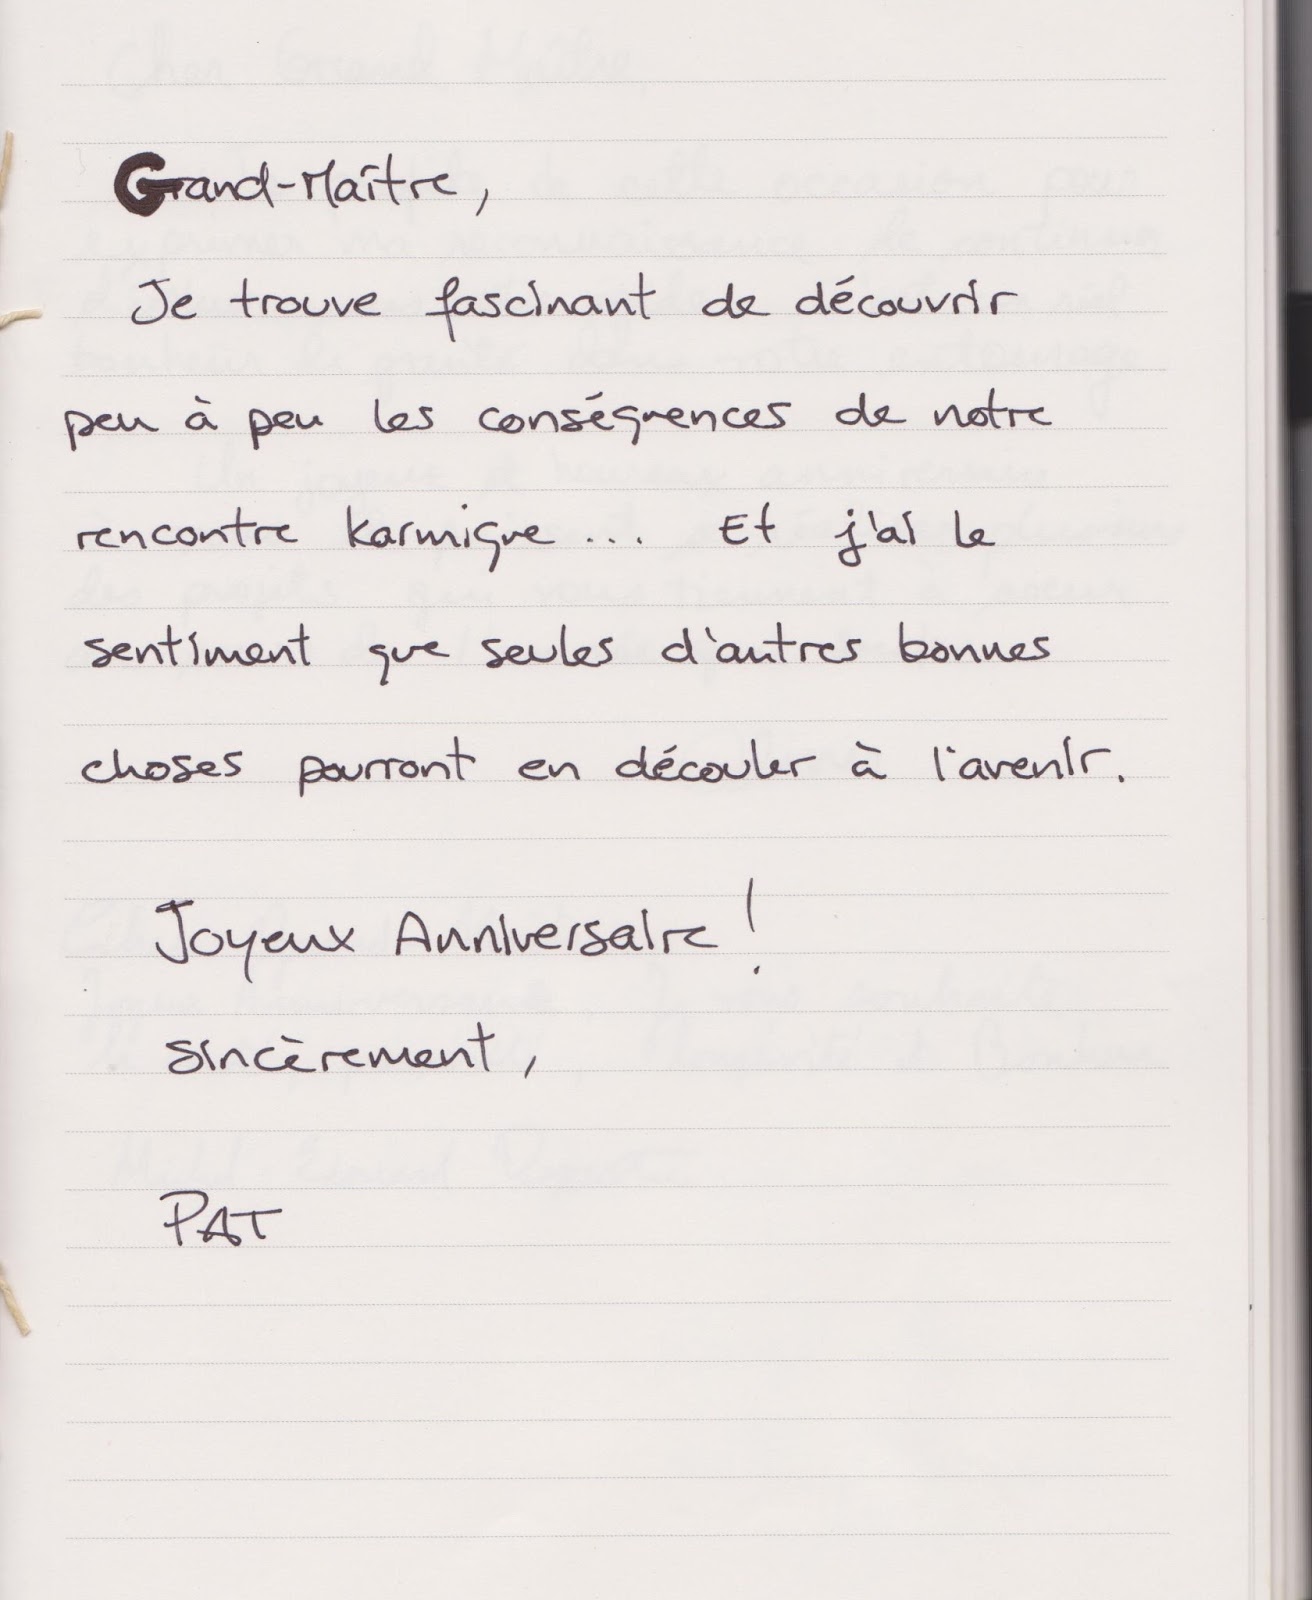 Grand-Maître,
Je trouve fascinant de découvrir
peu à peu les conséquences de notre
rencontre karmique... Et j'ai le
sentiment que seules d'autres bonnes
choses pourront en découler à l'avenir.
Joyeux Anniversaire !
sincèrement,
PAT